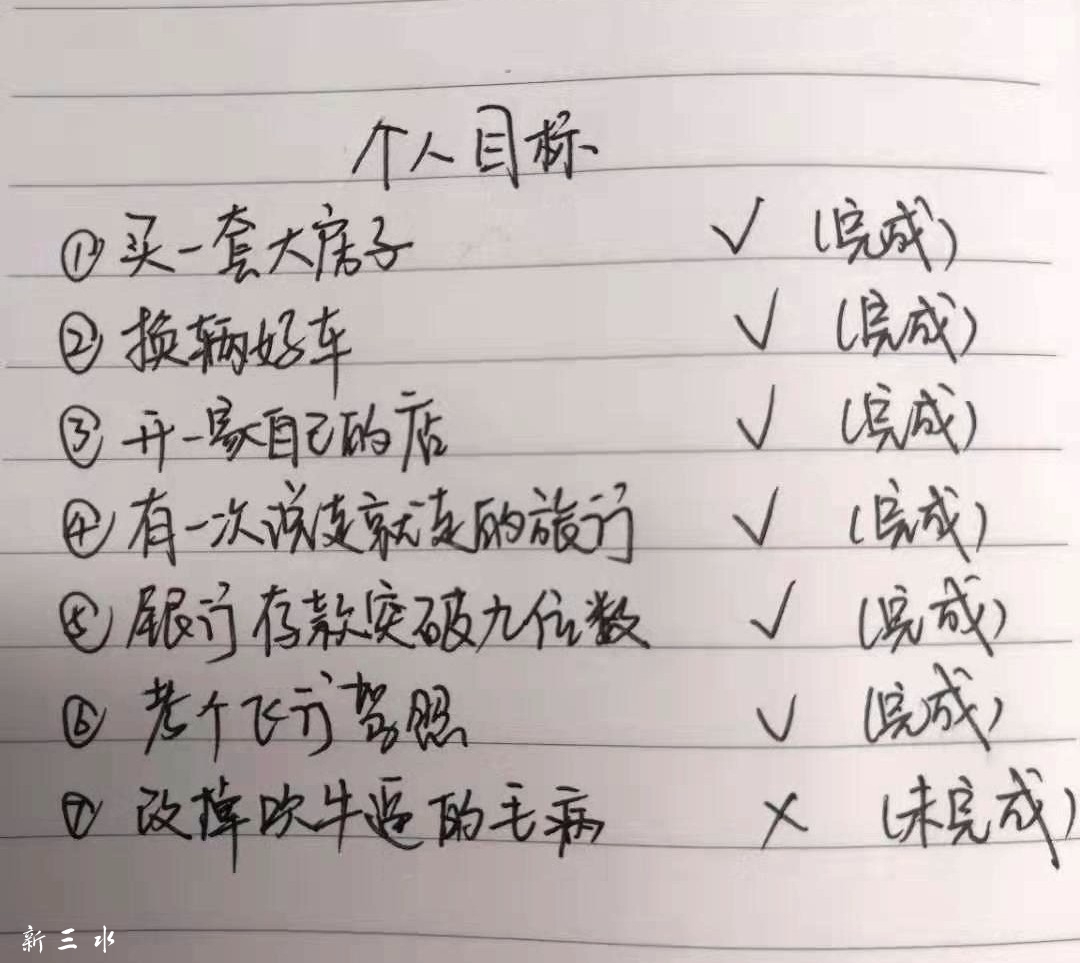 个人目标
①买一套大房子 √ (完成)
②换辆好车 √ (完成)
③开一家自己的店 √ (完成)
④有一次说走就走的旅行 √ (完成)
⑤银行存款突破九位数 √ (完成)
⑥考个飞行驾照 √ (完成)
⑦改掉吹牛逼的毛病 × (未完成)
新三水